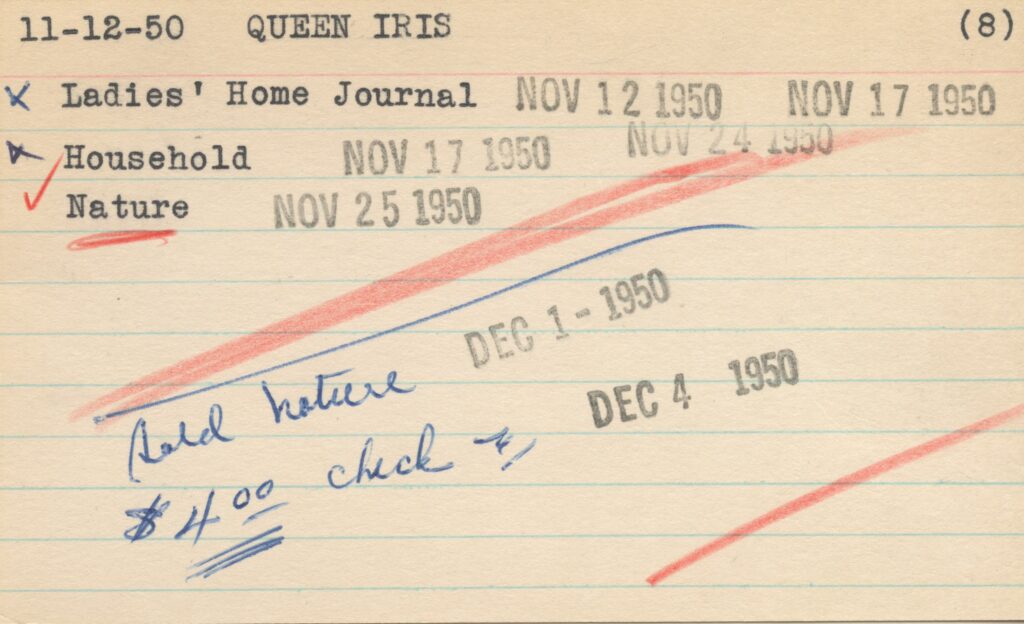 11-12-50 QUEEN IRIS (8)
Ladies' Home Journal NOV 12 1950 NOV 17 1950
Household NOV 17 1950 NOV 24 1950
Nature NOV 25 1950
DEC 1 - 1950
Sold Nature
DEC 4 1950
$4.00 check